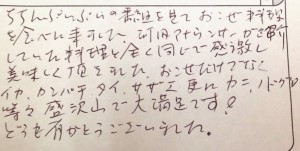 ちちんぷいぷいの番組を見ておこぜ料理
を食べに来ました。アナウンサーが
していた料理と全く同じで感激し
美味しく頂きました。おこぜだけでなく
イカ、カンパチ、タイ、サザエ、更にカニ、
等々 盛沢山で大満足です!
どうも有がとうございました。